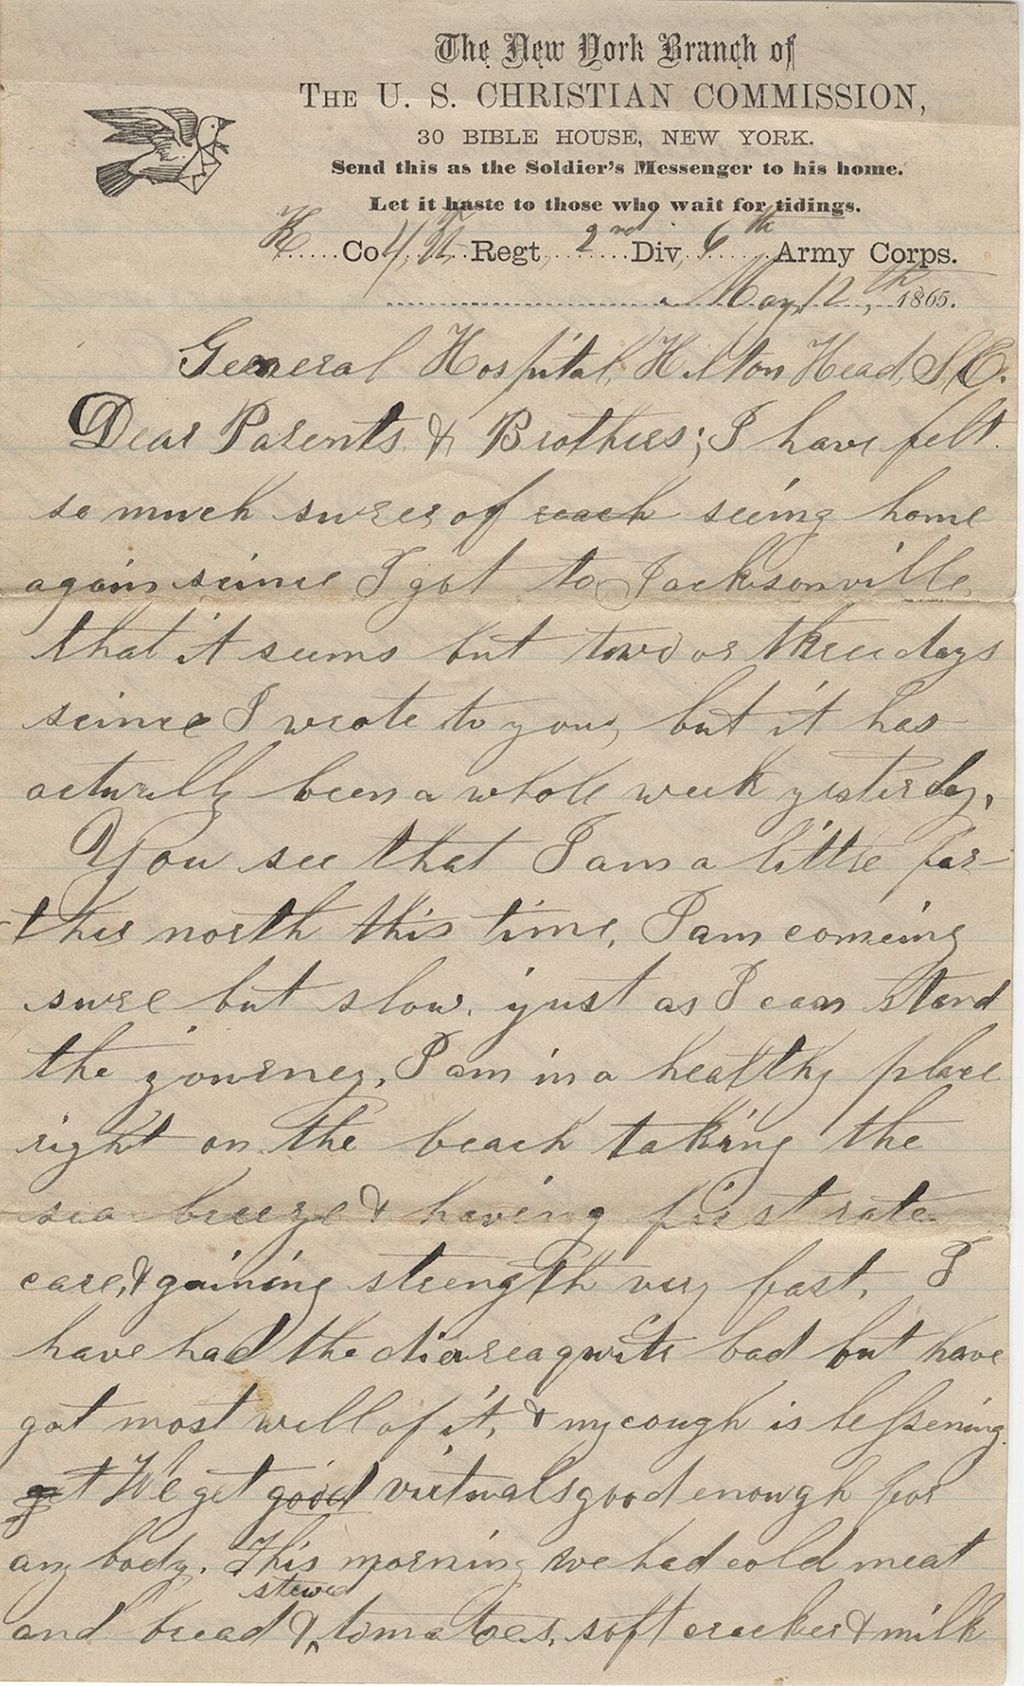 The New York Branch of
THE U. S. CHRISTIAN COMMISSION,
30 BIBLE HOUSE, NEW YORK.
Send this as the Soldier's Messenger to his home.
Let it haste to those who wait for tidings.
K Co 4, Vt Regt, 2nd Div, 6th Army Corps.
May 12,th 1865.
General Hospital, Hilton Head, S.C.
Dear Parents & Brothers; I have felt
so much surer of reach seeing home
again seince I got to Jacksonville
that it seems but two or three days
seince I wrote to you, but it has
actually been a whole week yesterday.
You see that I am a little far-
-ther north this time, I am comeing
sure but slow, just as I can stand
the journey, I am in a healthy place
right on the beach taking the
sea breeze & having first rate
care, & gaining strength very fast, I
have had the diarrea quite bad but have
got most well of it, & my cough is lessening.
get We get good victuals good enough for
any body. This morning we had cold meat
stewed
and bread & ^ tomatoes, soft cracker & milk